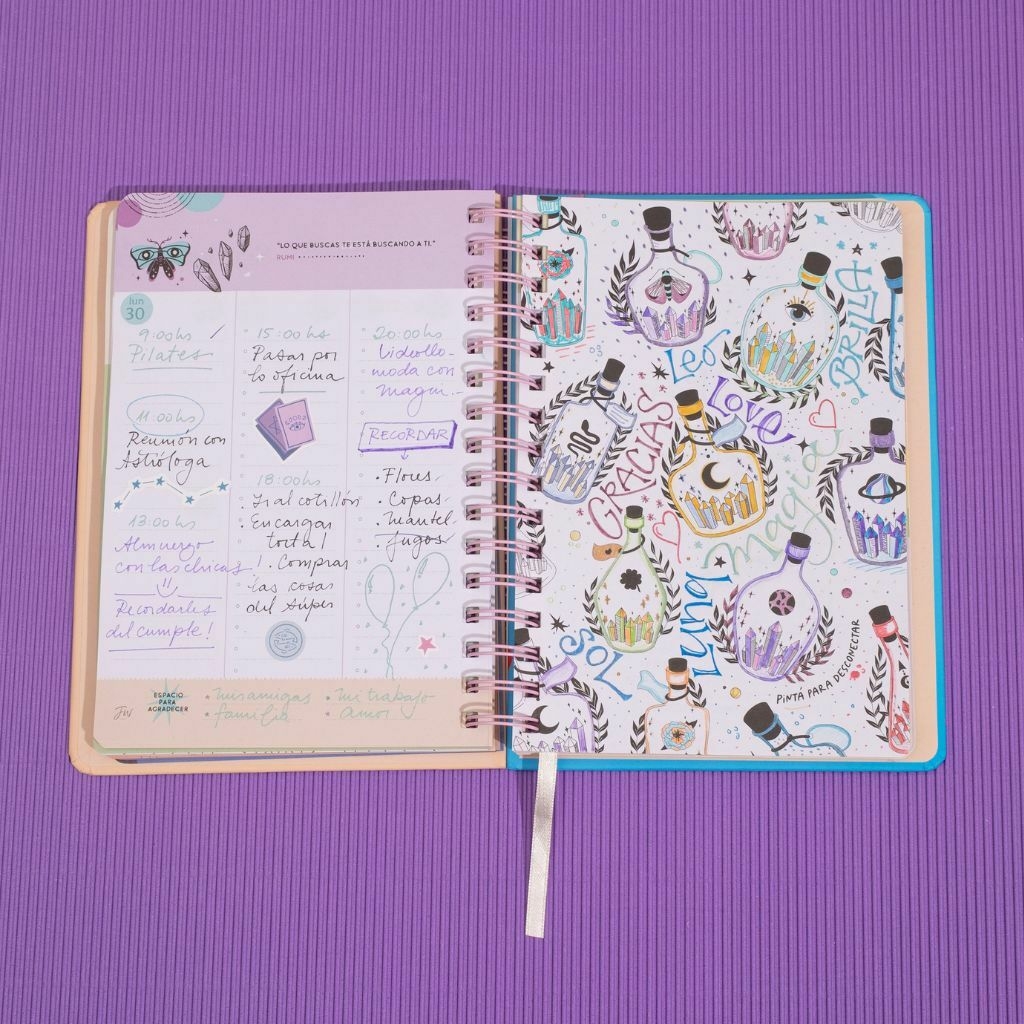 "LO QUE BUSCAS TE ESTÁ BUSCANDO A TI."
RUMI
lun
30
9:00hs
Pilates
11:00hs
Reunión con
Astróloga
13:00hs
Almuerzo
con las chicas!
Recordarles
del cumple!
15:00hs
Pasar por
la oficina
18:00hs
Ir al cotillón
Encargar
torta!
! Comprar
las cosas
del súper
20:00hs
Videolla-
mada con
Magui.
RECORDAR
Flores
Copas
Mantel
Jugos
ESPACIO
PARA
AGRADECER
mis amigas
familia
mi trabajo
amor
Leo
BRILLA
Love
GRACIAS
Magia
Luna
SOL
PINTÁ PARA DESCONECTAR